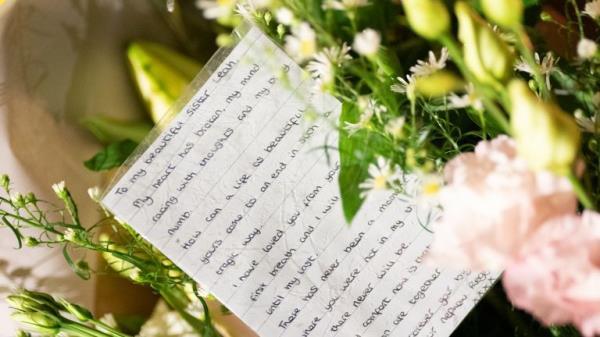 To my beautiful sister Leah,
My heart has broken, my mind
racing with thoughts and my body
numb.
How can a life as beautiful
yours come to an end in such
tragic way.
I have loved you from your
first breath and I will
until my last
There has never been a
where you were not in my
there never will be
comfort now is
are together
your
nephew